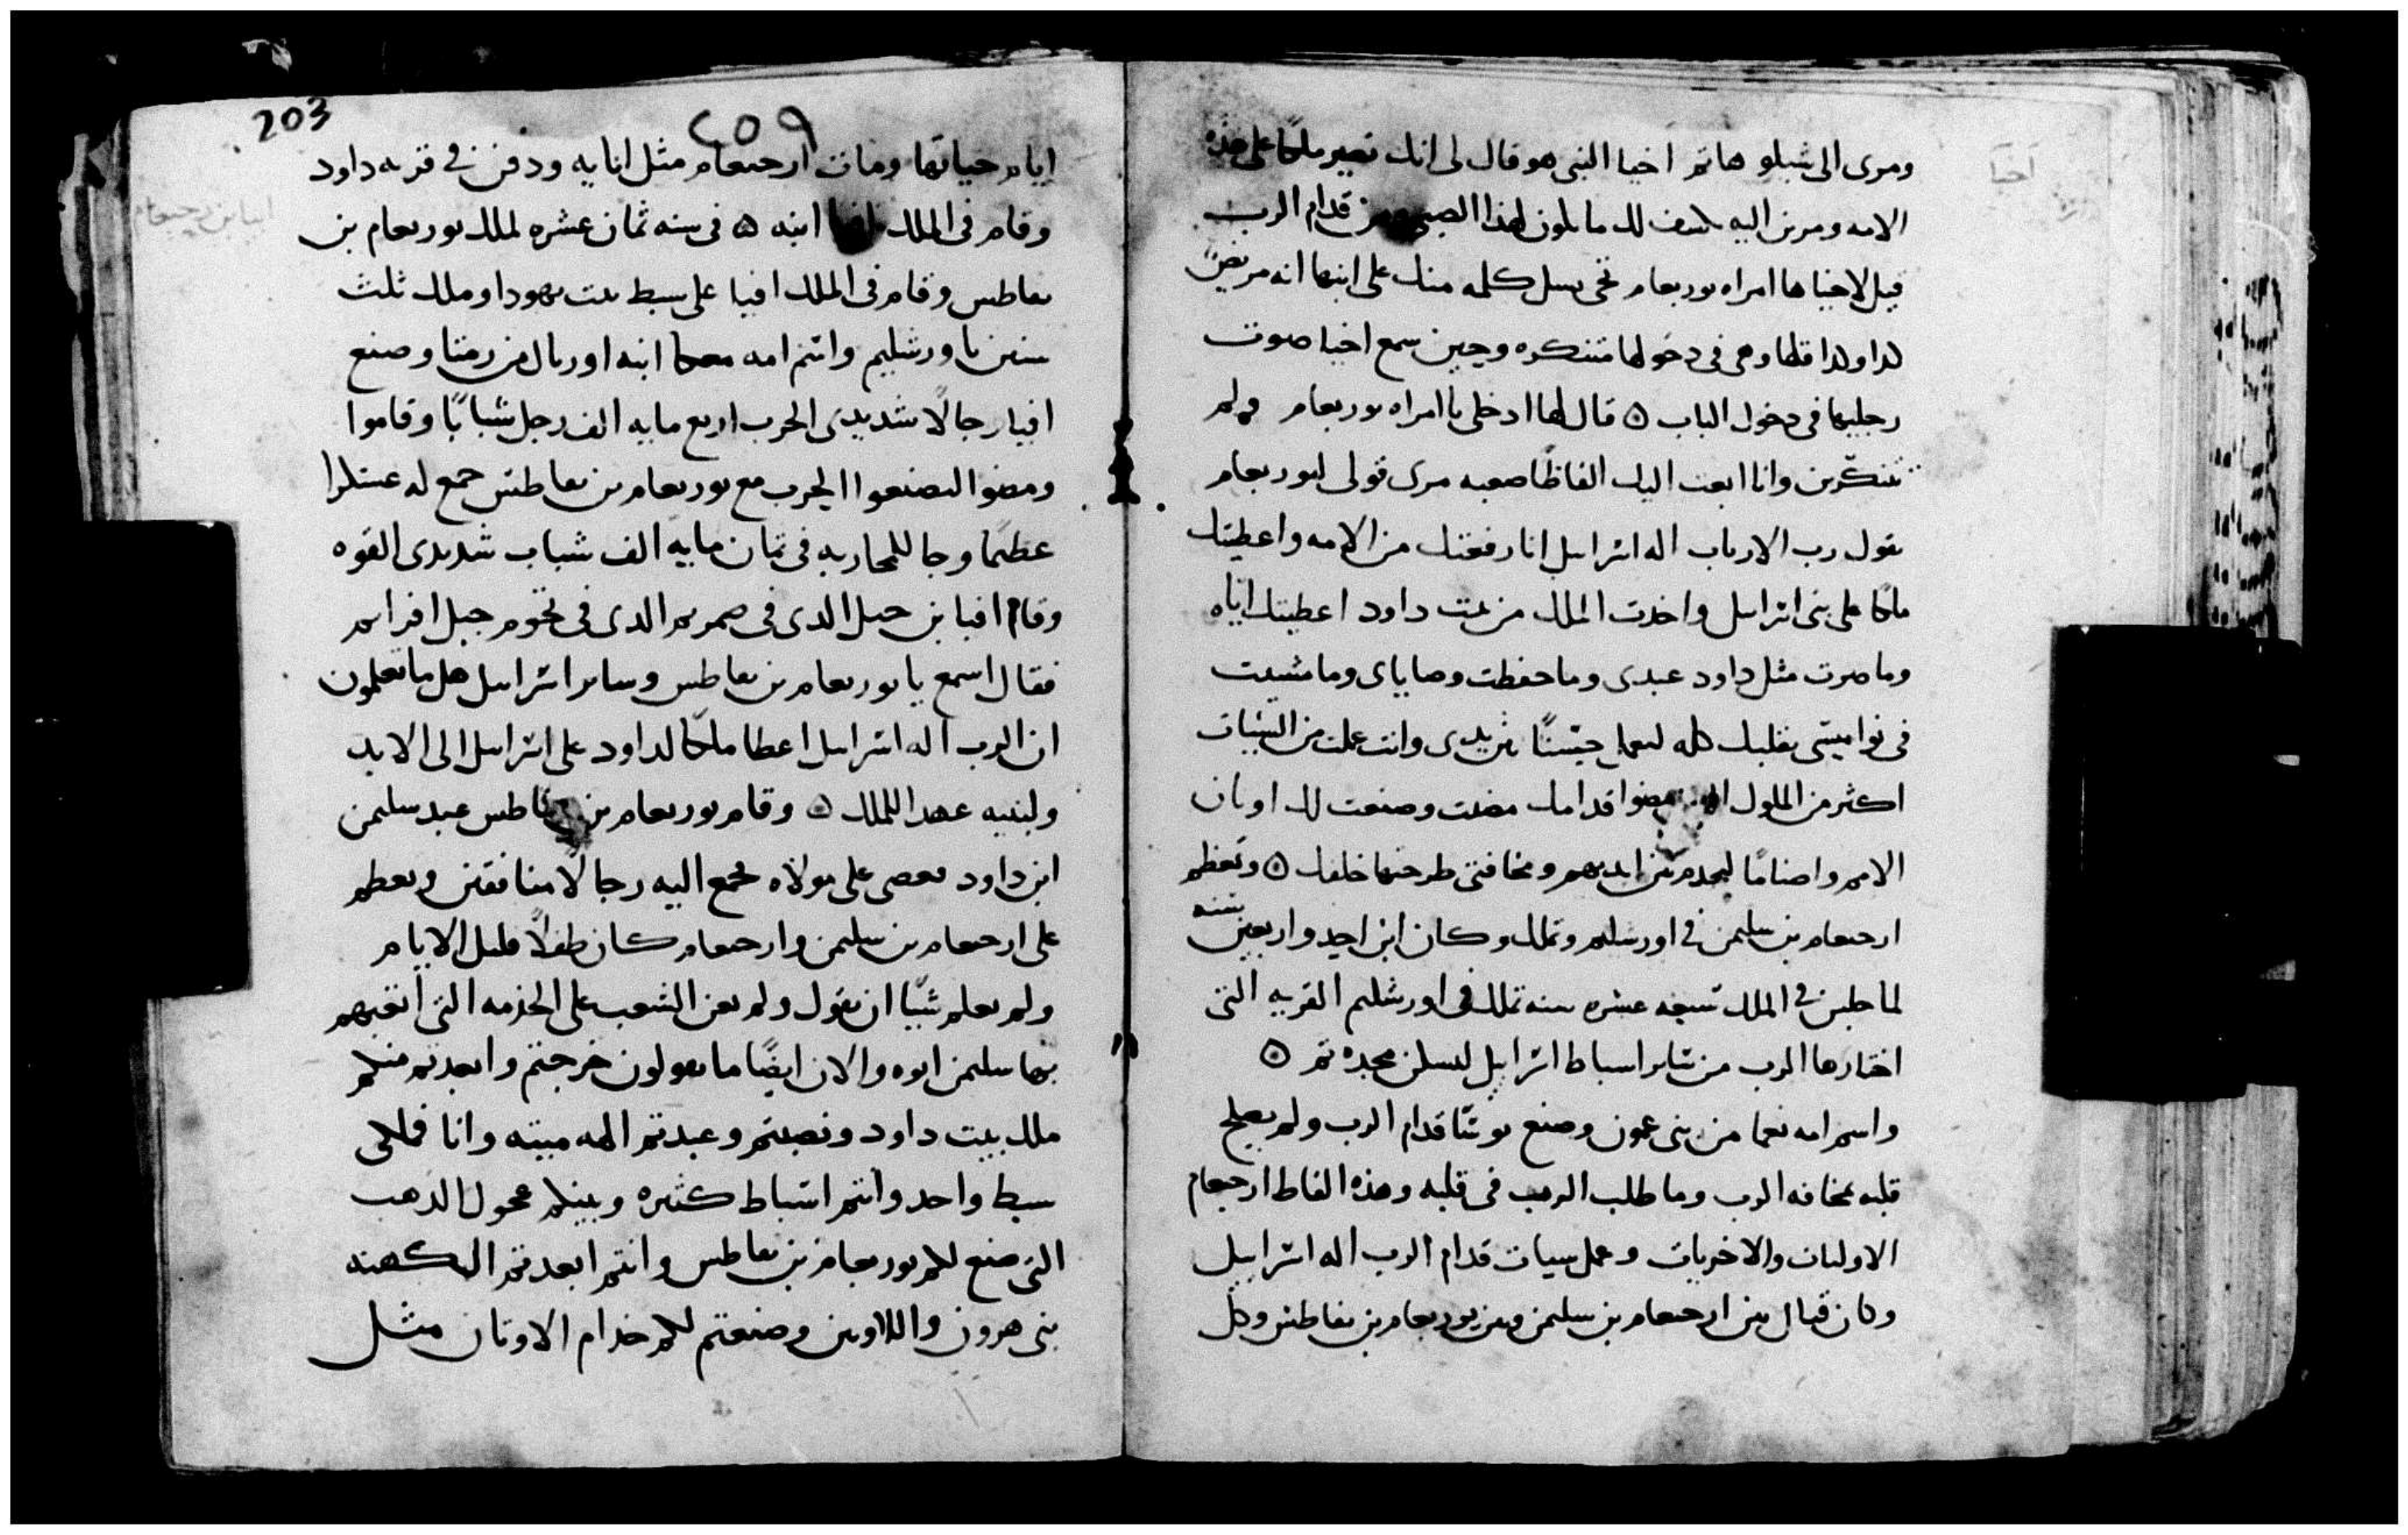 ومرى الى شيلو هاتم اخيا النبى هو قال لى انك تصير ملكا على هذه
الامه ومرين اليه يكشف لك ما يكون لهذا الصبى من قدام الرب
قيل لاخيا ها امراه يوربعام تجى تسل كلمه منك على ابنها انه مريض
كدا وكدا قلها وهى فى دخولها متنكره وحين سمع اخيا صوت
رجليها فى دخول الباب ٥ قال لها ادخلى يا امراه يوربعام ولم
تتنكرين وانا ابعت اليك الفاظا صعبه مرى قولى ليوربعام
يقول رب الارباب اله اسراييل انا رفعتك من الامه واعطيتك
ملكا على بنى اسراييل واخدت الملك من بيت داود اعطيتك اياه
وما صرت مثل داود عبدى وما حفظت وصاياى وما مشيت
فى نواميسى بقلبك كله لتعمل حسنا بين يدى وانت عملت من السيات
اكثر من الملوك مضوا قدامك مضيت وصنعت لك اوتان
الامم واصناما ومخافتى طرحتها خلفك ٥ وتعظم
ارحبعام بن سليمن فى اورشليم وتملك وكان ابن احد واربعين سنه
لما جلس فى الملك سبعه عشره سنه تملك فى اورشليم القريه التى
اختارها الرب من ساير اسباط اسراييل ليسكن مجده تم ٥
واسم امه نعما من بنى عمون وصنع سوا قدام الرب ولم يصلح
قلبه بمخافه الرب وما طلب الرب فى قلبه وهذه الفاظ ارحبعام
الاوليات والاخريات وعمل سيات قدام الرب اله اسراييل
وكان قتال بين ارحبعام بن سليمن وبين يوربعام بن نعاطس وكل
اخيا
203
٢٥٩
ايام حياتها ومات ارحبعام مثل ابايه ودفن فى قريه داود
وقام فى الملك افيا ابنه ٥ فى سنه ثمان عشره لملك يوربعام بن
نعاطس وقام فى الملك افيا على سبط بيت يهودا وملك ثلث
سنين باورشليم واسم امه معكا ابنه اوريال من رمتا وصنع
افيا رجالا شديدى الحرب اربع مايه الف رجل شبابا وقاموا
ومضوا ليصنعوا الحرب مع يوربعام بن نعاطس جمع له عسكرا
عظيما وجا للمحاربه فى ثمان مايه الف شباب شديدى القوه
وقام افيا بن جبل الدى فى صمريم الدى فى تخوم جبل افرايم
فقال اسمع يا يوربعام بن نعاطس وساير اسراييل هل ما تعلمون
ان الرب اله اسراييل اعطا ملكا لداود على اسراييل الى الابد
ولبنيه عهد الملك ٥ وقام يوربعام بن نعاطس عبد سليمن
ابن داود فعصى على مولاه فجمع اليه رجالا منافقين وتعظم
على ارحبعام بن سليمن وارحبعام كان طفلا قليل الايام
ولم يعلم شيا ان يقول ولم يعن الشعب على الخدمه التى اتعبهم
بها سليمن ابوه والان ايضا ما تقولون خرجتم وابعدتم منكم
ملك بيت داود ونصبتم وعبدتم الهه ميته وانا فملكى
سبط واحد وانتم اسباط كثيره وبينكم عجول الذهب
التى صنع لكم يوربعام بن نعاطس وانتم ابعدتم الكهنه
بنى هرون واللاويين وصنعتم لكم خدام الاوتان مثل
افيا بن رحبعام